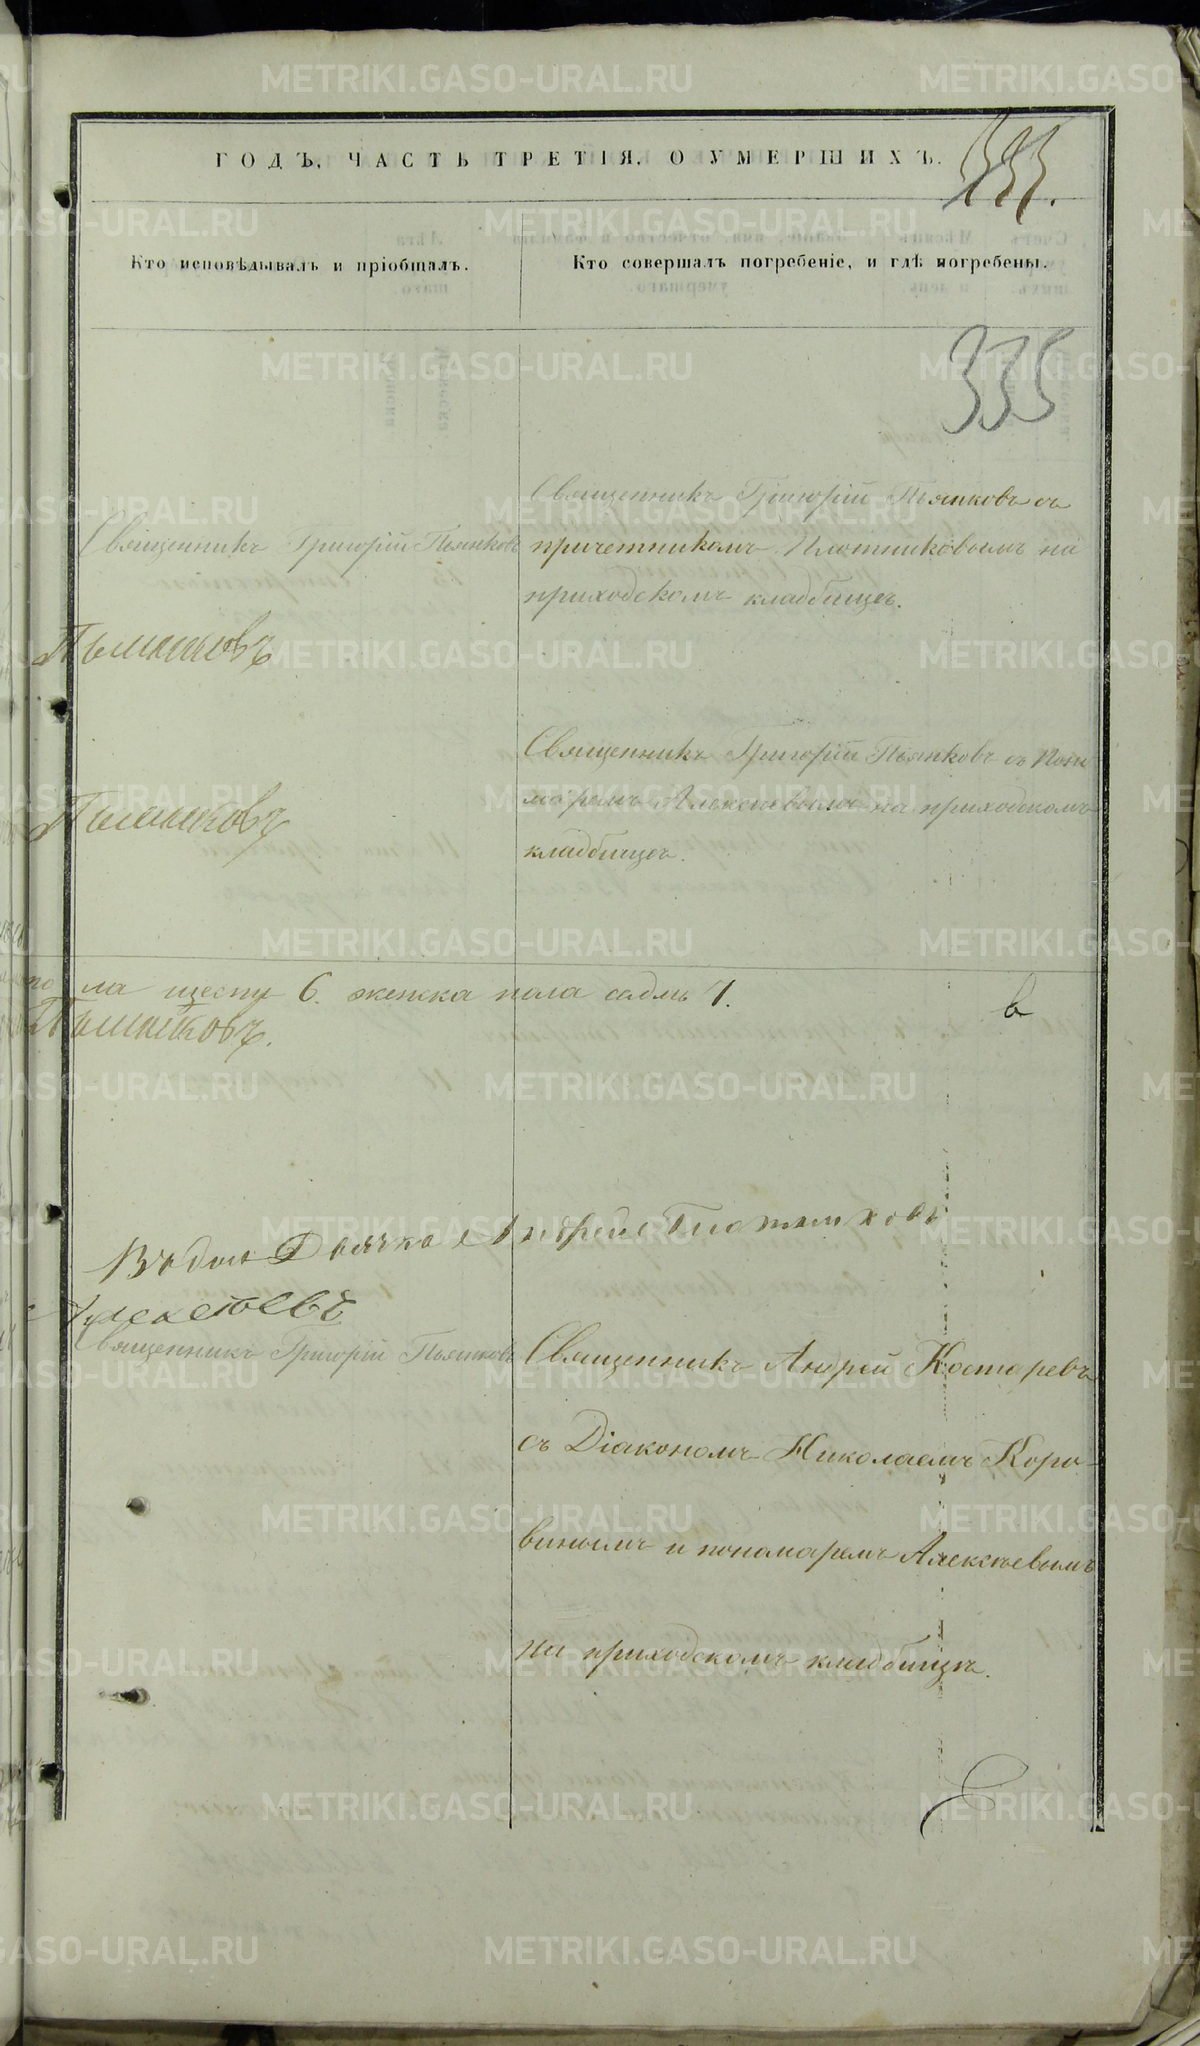 ГОДЪ, ЧАСТЬ ТРЕТІЯ. О УМЕРШИХЪ.
335.
Кто исповѣдывалъ и пріобщалъ.
Кто совершалъ погребеніе, и гдѣ погребены.
335
Священникъ Григорій Пьянковъ
Священникъ Григорій Пьянковъ съ
причетникомъ Плотниковымъ на
приходскомъ кладбищѣ.
Пьянковъ
Священникъ Григорій Пьянковъ съ Поно
маремъ Алексѣевымъ на приходскомъ
кладбищѣ.
Пьянковъ
6. женска пола седмь 7.
Пьянковъ.
Дьячка Андрей Плотниковъ
Алексѣевъ
Священникъ Григорій Пьянковъ
Священникъ Андрей Костаревъ
съ Діакономъ Николаемъ Коро-
винымъ и пономаремъ Алексѣевымъ
на приходскомъ кладбищѣ.
METRIKI.GASO-URAL.RU